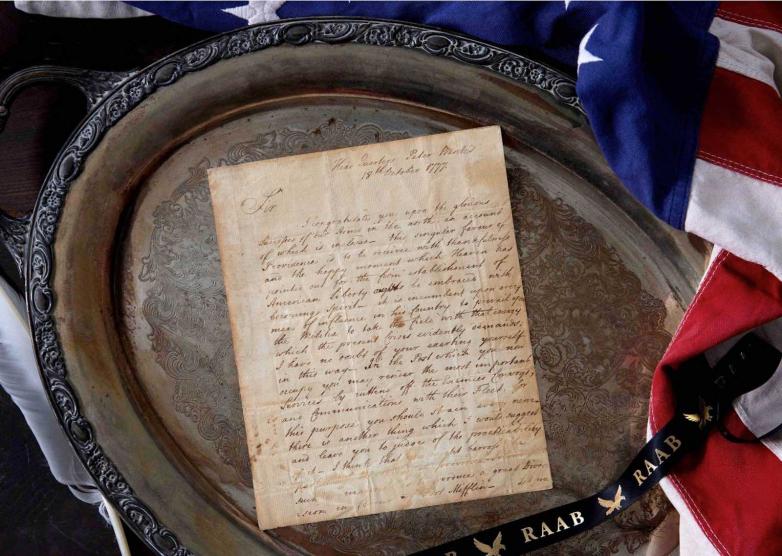 Head Quarters Peter Wentz's
18th October 1777
Sir
I congratulate you upon the glorious
Success of our Arms in the north an account
of which is inclosed. This singular favour of
Providence is to be received with thankfulness
and the happy moment which Heaven has
pointed out for the firm establishment of
American Liberty ought to be embraced with
becoming Spirit. it is incumbent upon every
man of influence in his Country to prevail upon
the Militia to take the Field with that energy
which the present Crisis evidently demands.
I have no doubt of your exerting yourself
in this way. In the Post which you now
occupy you may render the most important
Services by cutting off the Enemies Convoys
and Communications with their Fleet. For
this purpose you should
there is another thing which I would suggest
and leave you to judge of the practicability
of it. I think that
province
province a great Diver
such
from Mifflin
RAAB
RAAB